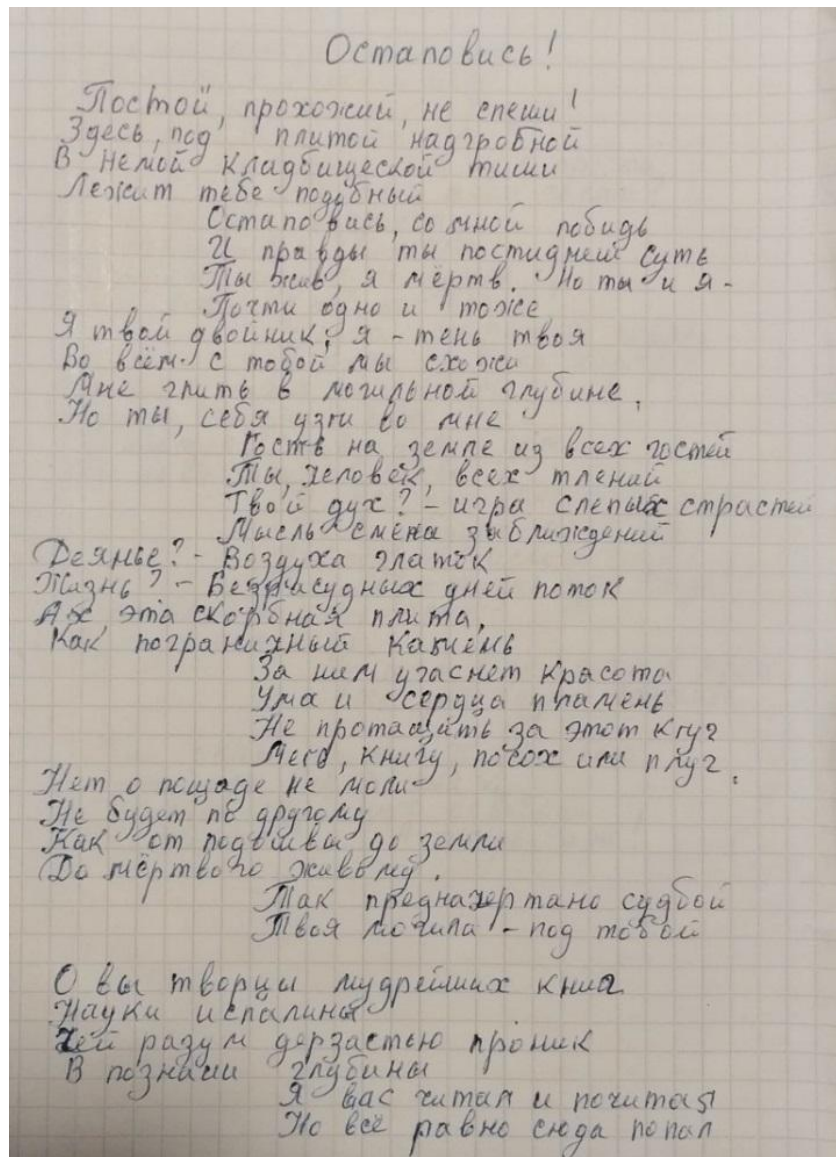 Остановись!
Постой, прохожий, не спеши!
Здесь, под плитой надгробной
В немой кладбищеской тиши
Лежит тебе подобный
Остановись, со мной побидь
И правды ты постигнеш суть
Ты жив, я мёртв. Но ты и я -
Почти одно и тоже
Я твой двойник, я - тень твоя
Во всём с тобой мы схожи
Мне гнить в могильной глубине,
Но ты, себя узги во мне
Гость на земле из всех гостей
Ты, человек, всех тлений
Твой дух? - игра слепых страстей
Мысль смена заближдений
Деянье? - Воздуха глаток
Жизнь? - Безрасудных дней поток
Ах, эта скорбная плита,
Как пограничный камень
За ним угаснет красота
Ума и сердца пламень
Не протащить за этот круг
Меч, книгу, посох или плуг.
Нет о пощаде не моли
Не будет по другому
Как от подошвы до земли
До мёртвого живому.
Так предначертано судбой
Твоя могила - под тобой
О вы творцы мудрейших книг
Науки исполины
Чей разум дерзастью проник
В познаии глубины
Я вас читал и почитал
Но всё равно сюда попал